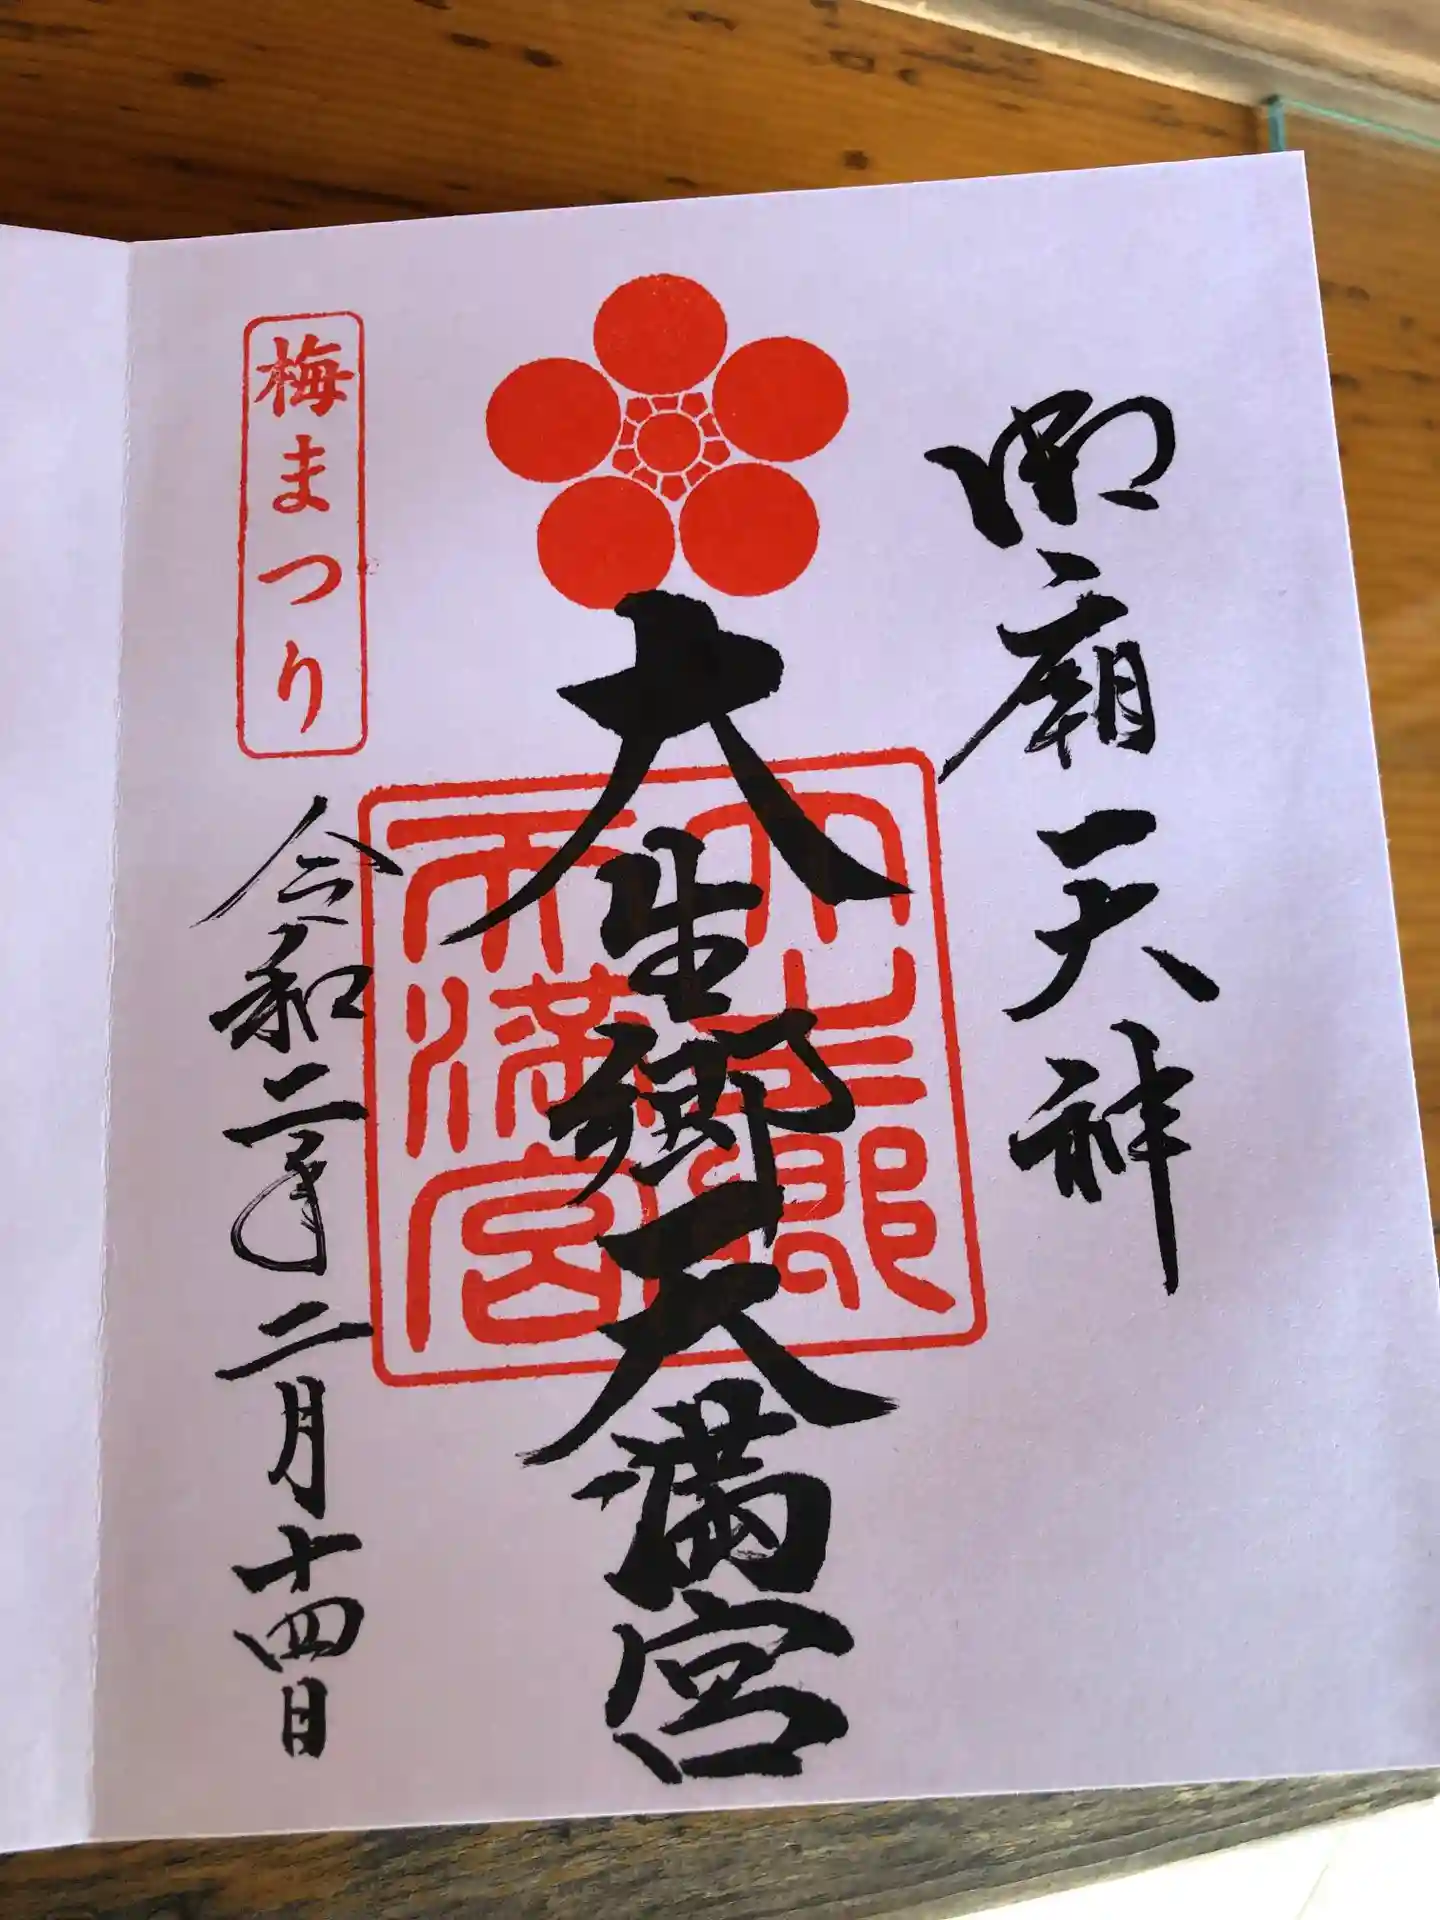 御廟天神
大生郷天満宮
大生郷
天満宮
梅まつり
令和二年二月十四日